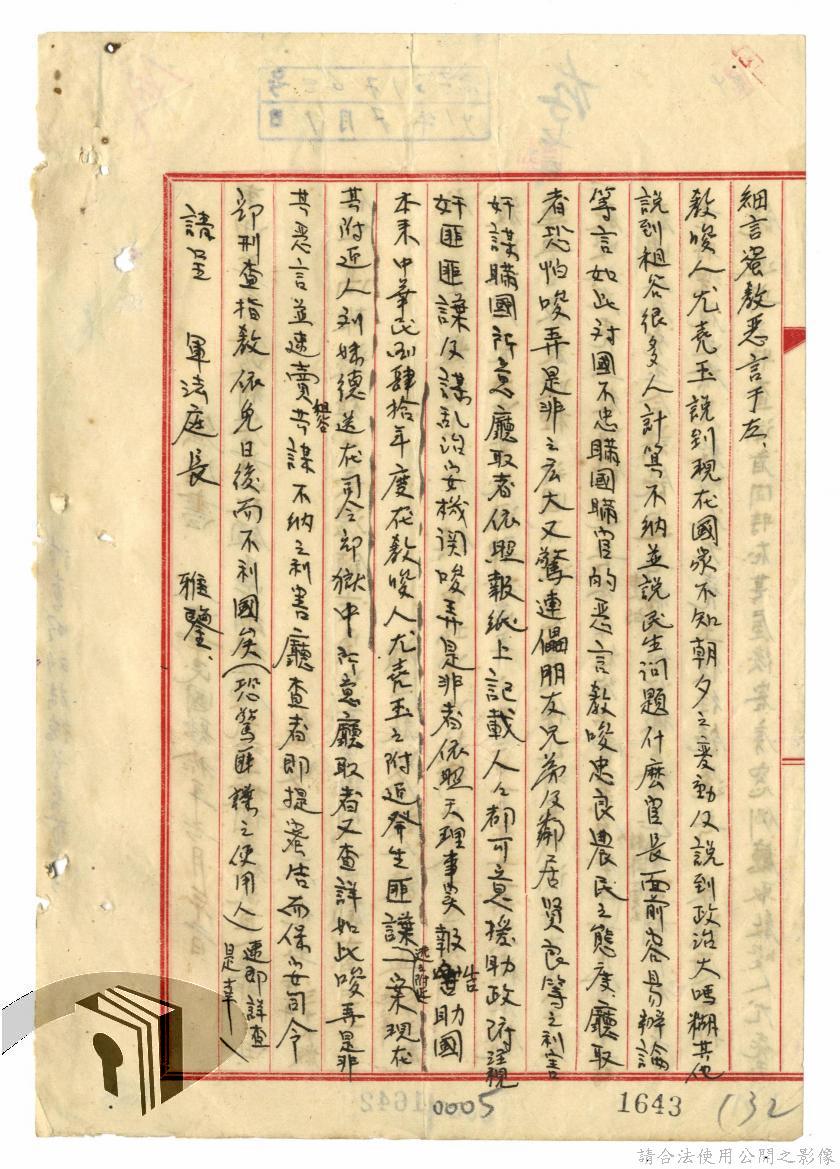 細言蜜教惡言于左、
教唆人尤堯玉說到現在國家不知朝夕之变動及說到政治大嗎糊其他
說到租谷很多人計算不納並說民生问題什麼官長面前容易辦論
等言如此对國不忠瞞國瞞官的惡言教唆忠良農民之態度、廳取
者恐怕唆弄是非之広大又驚連儡朋友兄弟及鄰居賢良等之利害
奸謀瞞國所意廳取者依照報紙上記載人々都可意援助政府
奸匪匪諜及謀乱治安機関唆弄是非者依照天理事实報告助國
本来中華民國肆拾年度在教唆人尤堯玉之附近發生匪諜一案現在
其附近人刘妹德送在司令部獄中所意廳取者又查詳如此唆弄是非
其惡言並速賣租谷共謀不納之利害廳查者即提蜜告而保安司令
部刑查指教依免日後而不利國矣(恐驚匪諜之使用人)速即詳查是幸)
請呈　軍法庭長　雅鑒、
0005
1643
132
請合法使用公開之影像